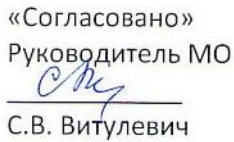 «Согласовано»
Руководитель МО
С.В. Витулевич